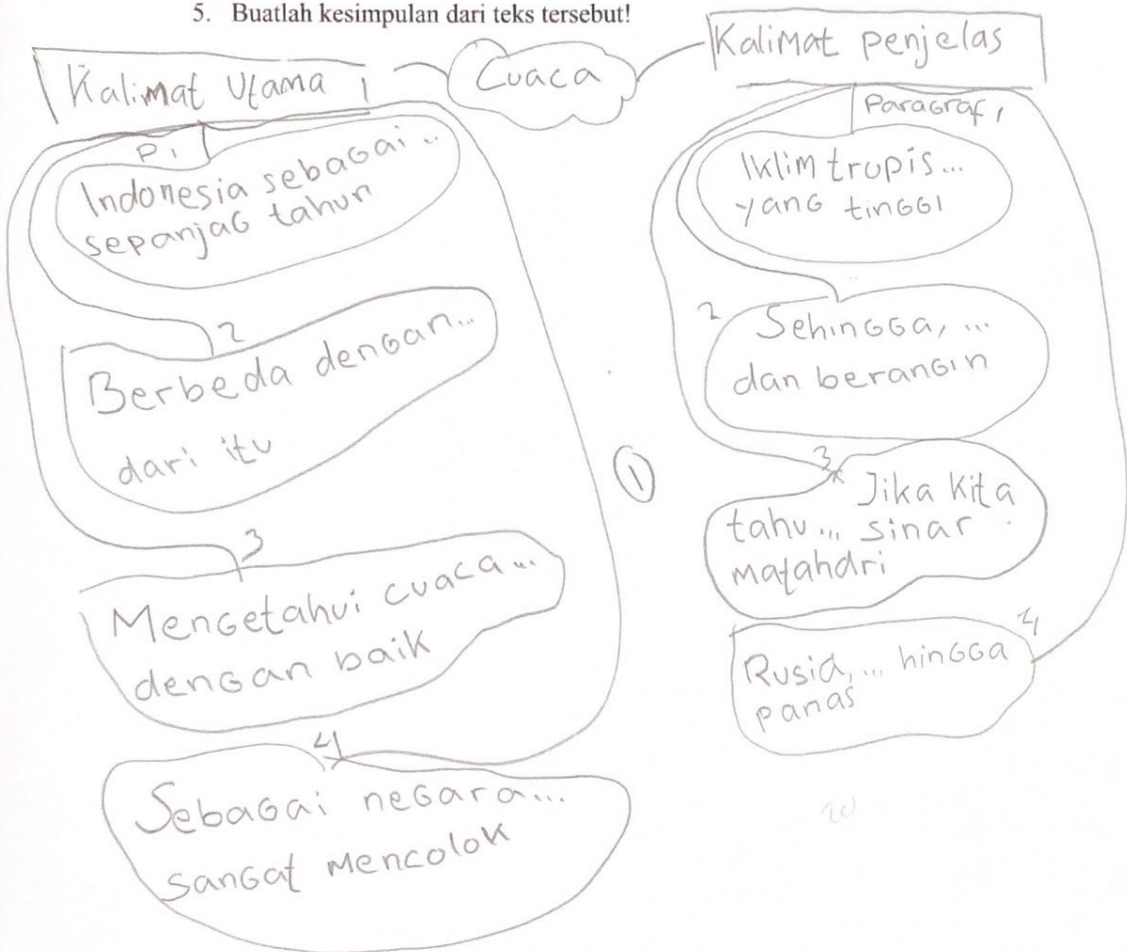 5. Buatlah kesimpulan dari teks tersebut!
Kalimat Utama
Cuaca
Kalimat penjelas
P1
Indonesia sebagai..
sepanjaG tahun
2
Berbeda dengan...
dari itu
3
Mengetahui cuaca...
dengan baik
4
Sebagai negara...
sangat mencolok
1
Paragraf 1
Iklim tropis...
yang tinggi
2
Sehingga, ...
dan berangin
3
Jika kita
tahu... sinar
matahari
4
Rusia, ... hingga
panas
20